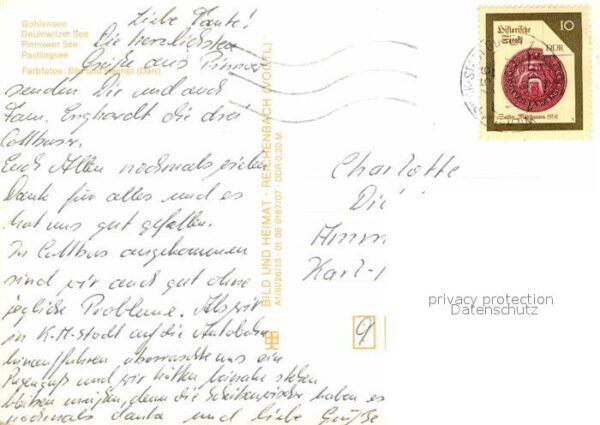 Göhlensee
Deulowitzer See
Pinnower See
Pastlingsee
Farbfotos: Bild und Heimat
Liebe Tante!
Die herzlichsten
Grüße aus Pinnow
senden Dir und auch
Fam. die drei
Cottbuser.
Euch Allen nochmals vielen
Dank für alles und es
hat uns gut gefallen.
In Cottbus angekommen
sind wir auch gut ohne
jegliche Probleme. Als wir
in K.-M.-Stadt auf die Autobahn
hinauffuhren überraschte uns ein
Regenguß und wir hätten beinahe stehen
bleiben müssen, denn die Scheibenwischer haben es
nochmals danke und liebe Grüße
BILD UND HEIMAT · REICHENBACH (VOGTL)
A1/III/26/13 01 06 0167/07 DDR 0,20 M
Historische
Siegel
10
DDR
Charlotte
Karl-
9
privacy protection
Datenschutz